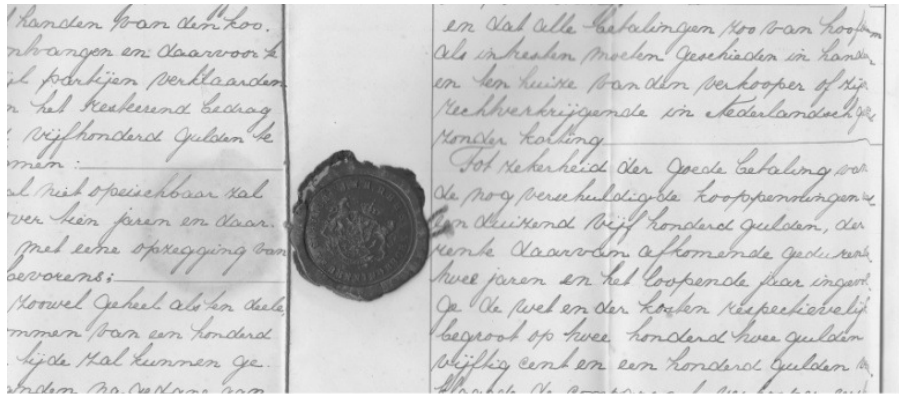 handen van den koo.
ntvangen en daarvoor te
partijen verklaarden
n het resteerend bedrag
vijfhonderd gulden te
omen:
al niet opeischbaar zal
ver tien jaren en daar.
met eene opzegging van
bevorens;
zoowel geheel als ten deele
ommen van een honderd
tijde zal kunnen ge.
anden na gedane aan
en dat alle betalingen zoo van hoofdsom
als interesten moeten geschieden in handen
en ten huize van den verkooper of zijn
rechtverkrijgende in Nederlandsch
zonder korting
Tot zekerheid der goede betaling van
de nog verschuldigde kooppenningen
een duizend vijf honderd gulden, der
rente daarvan afkomende gedurende
twee jaren en het loopende jaar ingevol
ge de wet en der kosten respectievelijk
begroot op twee honderd twee gulden
vijftig cent en een honderd gulden